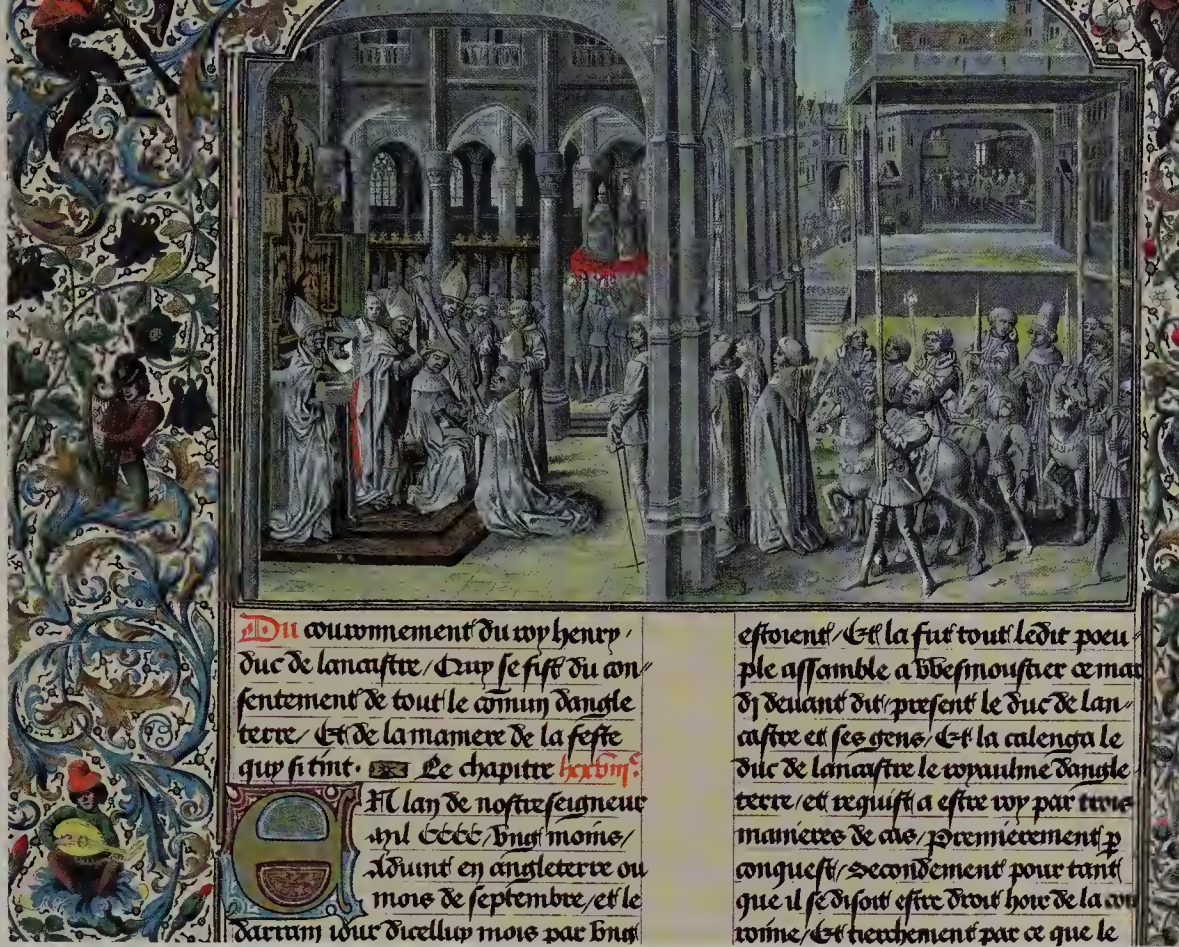 Du couronnement du roy henry /
duc de lancastre / Quy se fist du con〃
sentement de tout le cōmun dangle
terre / Et de la maniere de la feste
quy si tint. Le chapitre
EN lan de nostre seigneur
Mil CCCC / vng moins /
Aduint en angleterre ou
mois de septembre / et le
darrain iour dicelluy mois par vng
estoient / Et la fut tout ledit poeu〃
ple assamble a Wesmoustier ce mar
dj deuant dit / present le duc de lan〃
castre et ses gens / Et la calenga le
duc de lancastre le royaulme dangle
terre / et requist a estre roy par trois
manieres de cas / Premierement p̲
conquest / Secondement pour tant
que il se disoit estre droit hoir de la cou
ronne / Et tierchement par ce que le